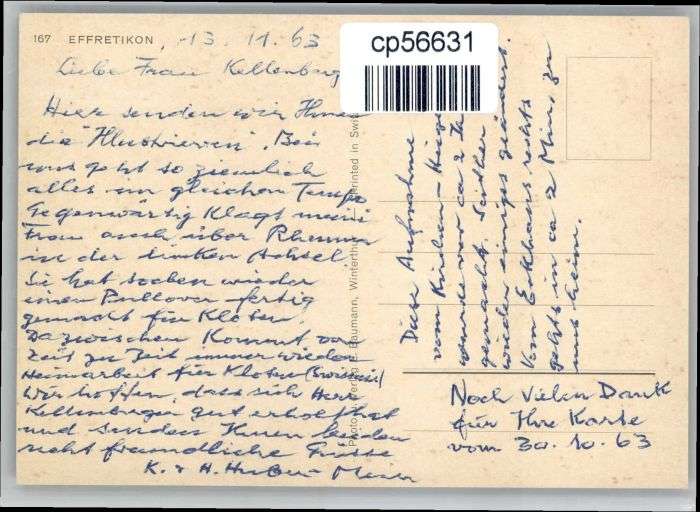 167 EFFRETIKON
13. 11. 63
cp56631
Liebe Frau Kellenberg
Hier senden wir Ihnen
die "Illustrieren". Bei
uns geht so ziemlich
alles im gleichen Tempo
Gegenwärtig klagt meine
Frau auch über Rheuma
in der linken Achsel.
Sie hat soeben wieder
einen Pullover fertig
gemacht für Kloten.
Dazwischen kommt von
Zeit zu Zeit immer wieder
Heimarbeit für Kloten (Swissair)
Wir hoffen, dass sich Herr
Kellenberger gut erholt hat
und senden Ihnen beiden
recht freundliche Grüsse
K. & H. Huber-
Photo Verlag Baumann, Winterth
Printed in Swit
Diese Aufnahme
vom Kirchen-
wurde vor ca 2
gemacht. Seither
wieder einiges geändert.
Vom Eckhaus rechts
gehts in ca 2 Min. zu
uns heim.
Noch vielen Dank
für Ihre Karte
vom 30. 10. 63